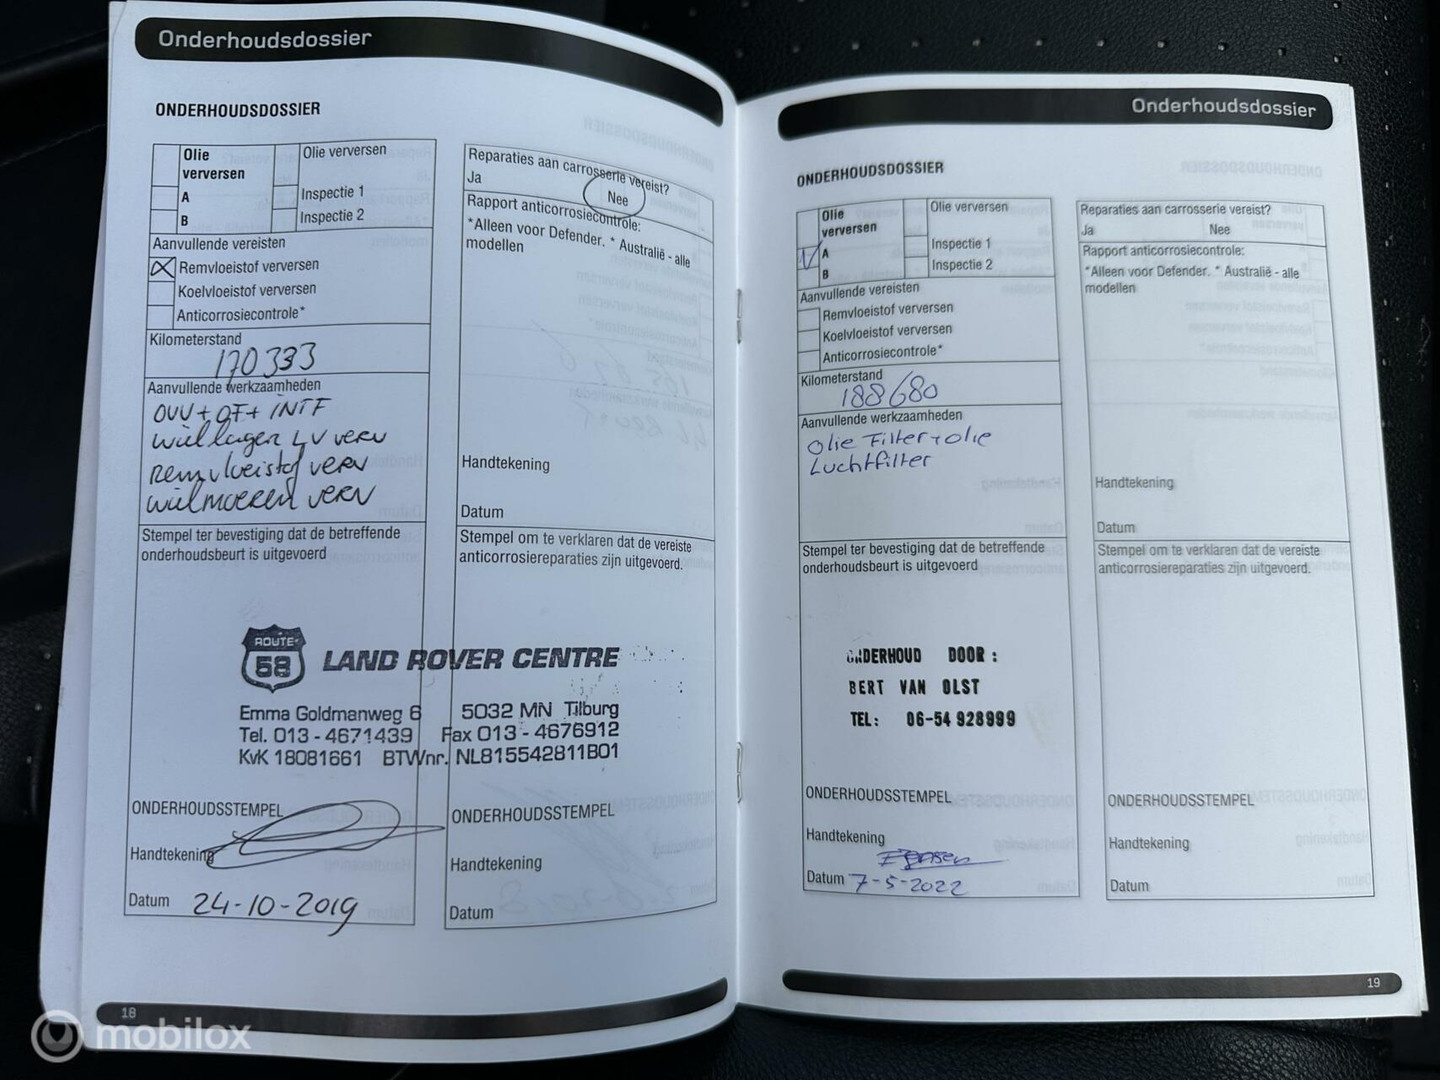 Onderhoudsdossier
ONDERHOUDSDOSSIER
Olie verversen
A
B
Olie verversen
Inspectie 1
Inspectie 2
Aanvullende vereisten
Remvloeistof verversen
Koelvloeistof verversen
Anticorrosiecontrole*
Kilometerstand
170333
Aanvullende werkzaamheden
OVV + OF + INTF
wiellager LV verv
Remvloeistof verv
wielmoeren verv
Stempel ter bevestiging dat de betreffende
onderhoudsbeurt is uitgevoerd
Reparaties aan carrosserie vereist?
Ja
Nee
Rapport anticorrosiecontrole:
*Alleen voor Defender. * Australië - alle
modellen
Handtekening
Datum
Stempel om te verklaren dat de vereiste
anticorrosiereparaties zijn uitgevoerd.
ROUTE
58
LAND ROVER CENTRE
Emma Goldmanweg 6 5032 MN Tilburg
Tel. 013 - 4671439 Fax 013 - 4676912
KvK 18081661 BTWnr. NL815542811B01
ONDERHOUDSSTEMPEL
Handtekening
Datum 24-10-2019
ONDERHOUDSSTEMPEL
Handtekening
Datum
18
Onderhoudsdossier
ONDERHOUDSDOSSIER
Olie
verversen
A
B
Olie verversen
Inspectie 1
Inspectie 2
Aanvullende vereisten
Remvloeistof verversen
Koelvloeistof verversen
Anticorrosiecontrole*
Kilometerstand
188680
Aanvullende werkzaamheden
Olie Filter + olie
Luchtfilter
Stempel ter bevestiging dat de betreffende
onderhoudsbeurt is uitgevoerd
ONDERHOUD DOOR :
BERT VAN OLST
TEL: 06-54 928999
ONDERHOUDSSTEMPEL
Handtekening
Datum 7-5-2022
Reparaties aan carrosserie vereist?
Ja
Nee
Rapport anticorrosiecontrole:
*Alleen voor Defender. * Australië - alle
modellen
Handtekening
Datum
Stempel om te verklaren dat de vereiste
anticorrosiereparaties zijn uitgevoerd.
ONDERHOUDSSTEMPEL
Handtekening
Datum
19
mobilox